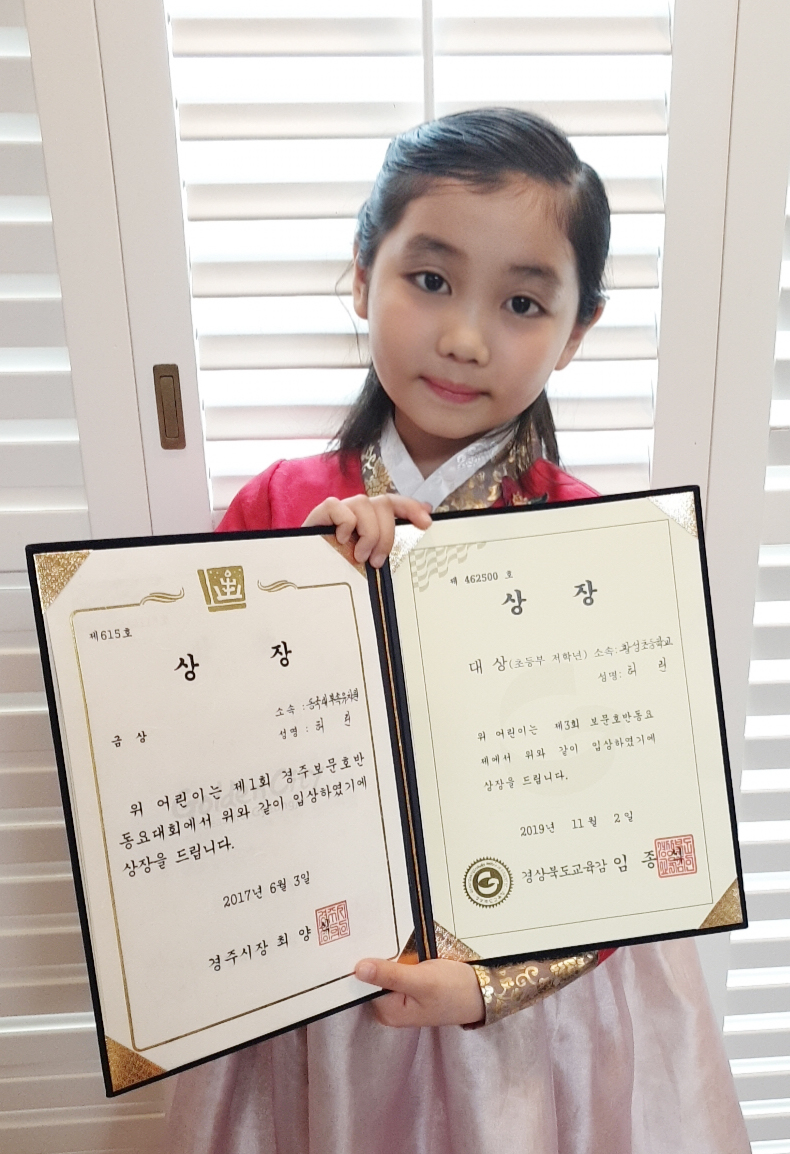 제615호
상 장
소속 : 동국대부속유치원
금 상
성명 : 허 린
위 어린이는 제1회 경주보문호반
동요대회에서 위와 같이 입상하였기에
상장을 드립니다.
2017년 6월 3일
경주시장 최 양 식
제 462500 호
상 장
대 상(초등부 저학년) 소속:황성초등학교
성명: 허 린
위 어린이는 제3회 보문호반동요
제에서 위와 같이 입상하였기에
상장을 드립니다.
2019년 11월 2일
경상북도교육감 임 종 식